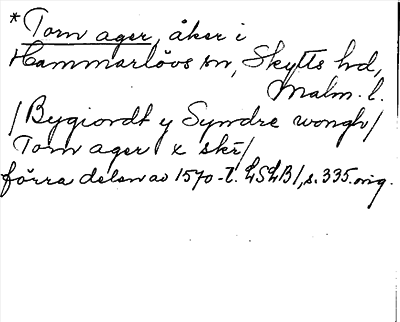 *Torn ager, åker i
Hammarlövs sn, Skytts hd,
Malm. l.
/Bygiordt y Syndre wongh/
Torn ager x skr/
förra delen av 1570-t. LSLB1, s. 335. orig.